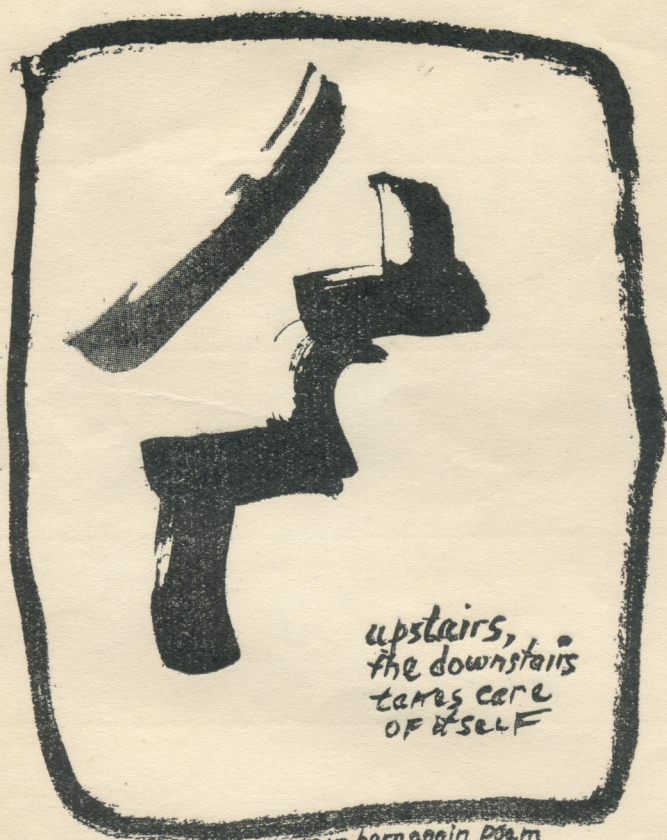 upstairs,
the downstairs
takes care
OF itSELF
born again poem